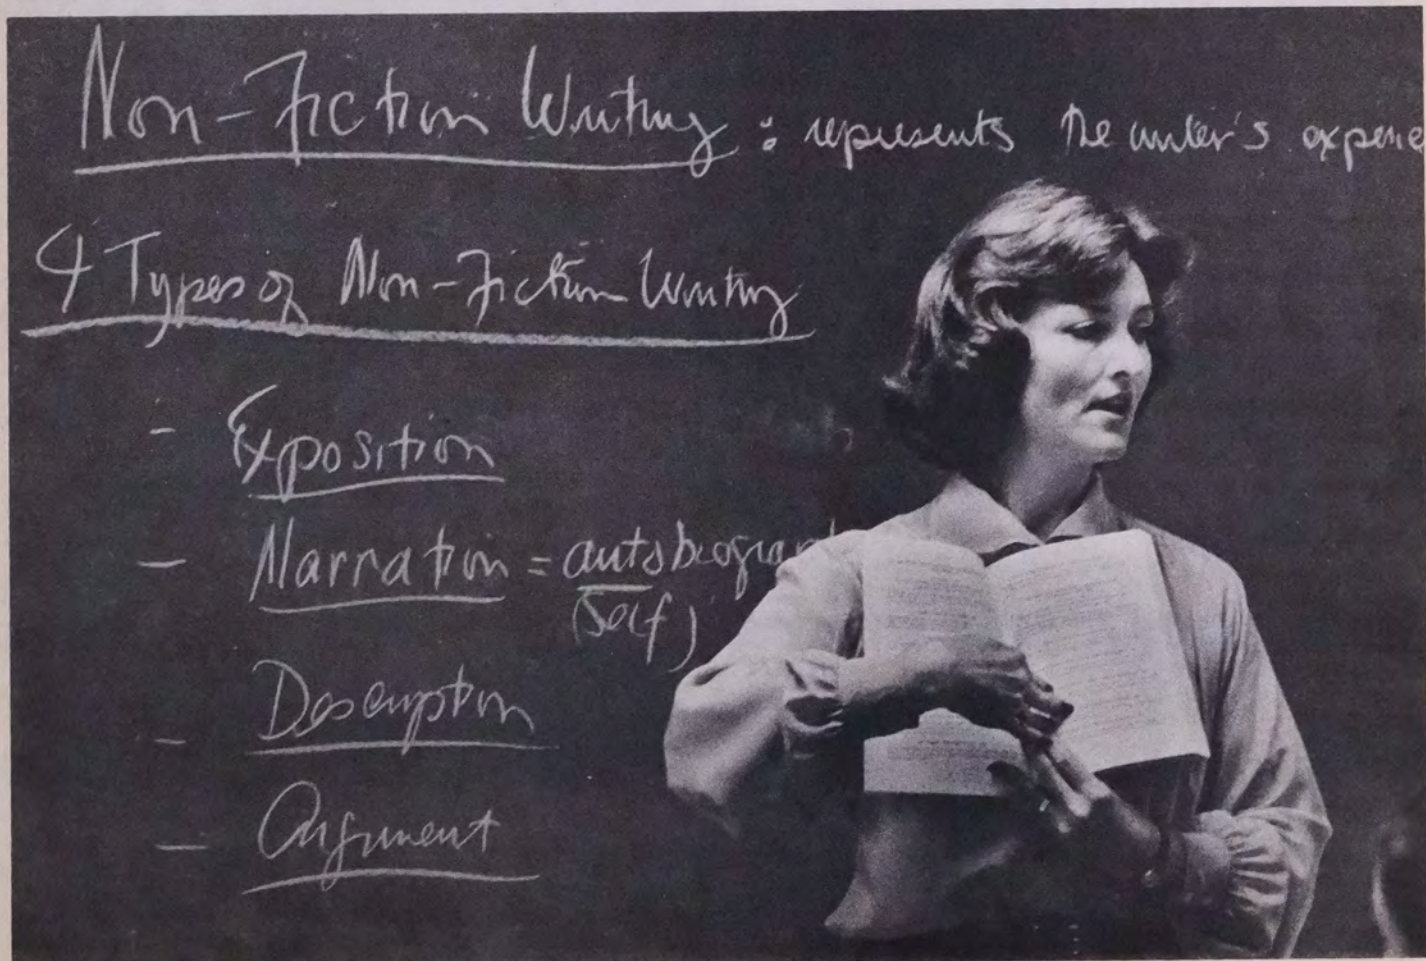 Non-Fiction Writing : represents the writer's experie
4 Types of Non-Fiction Writing
- Exposition
- Narration = autobiograp
(Self)
- Description
- Argument